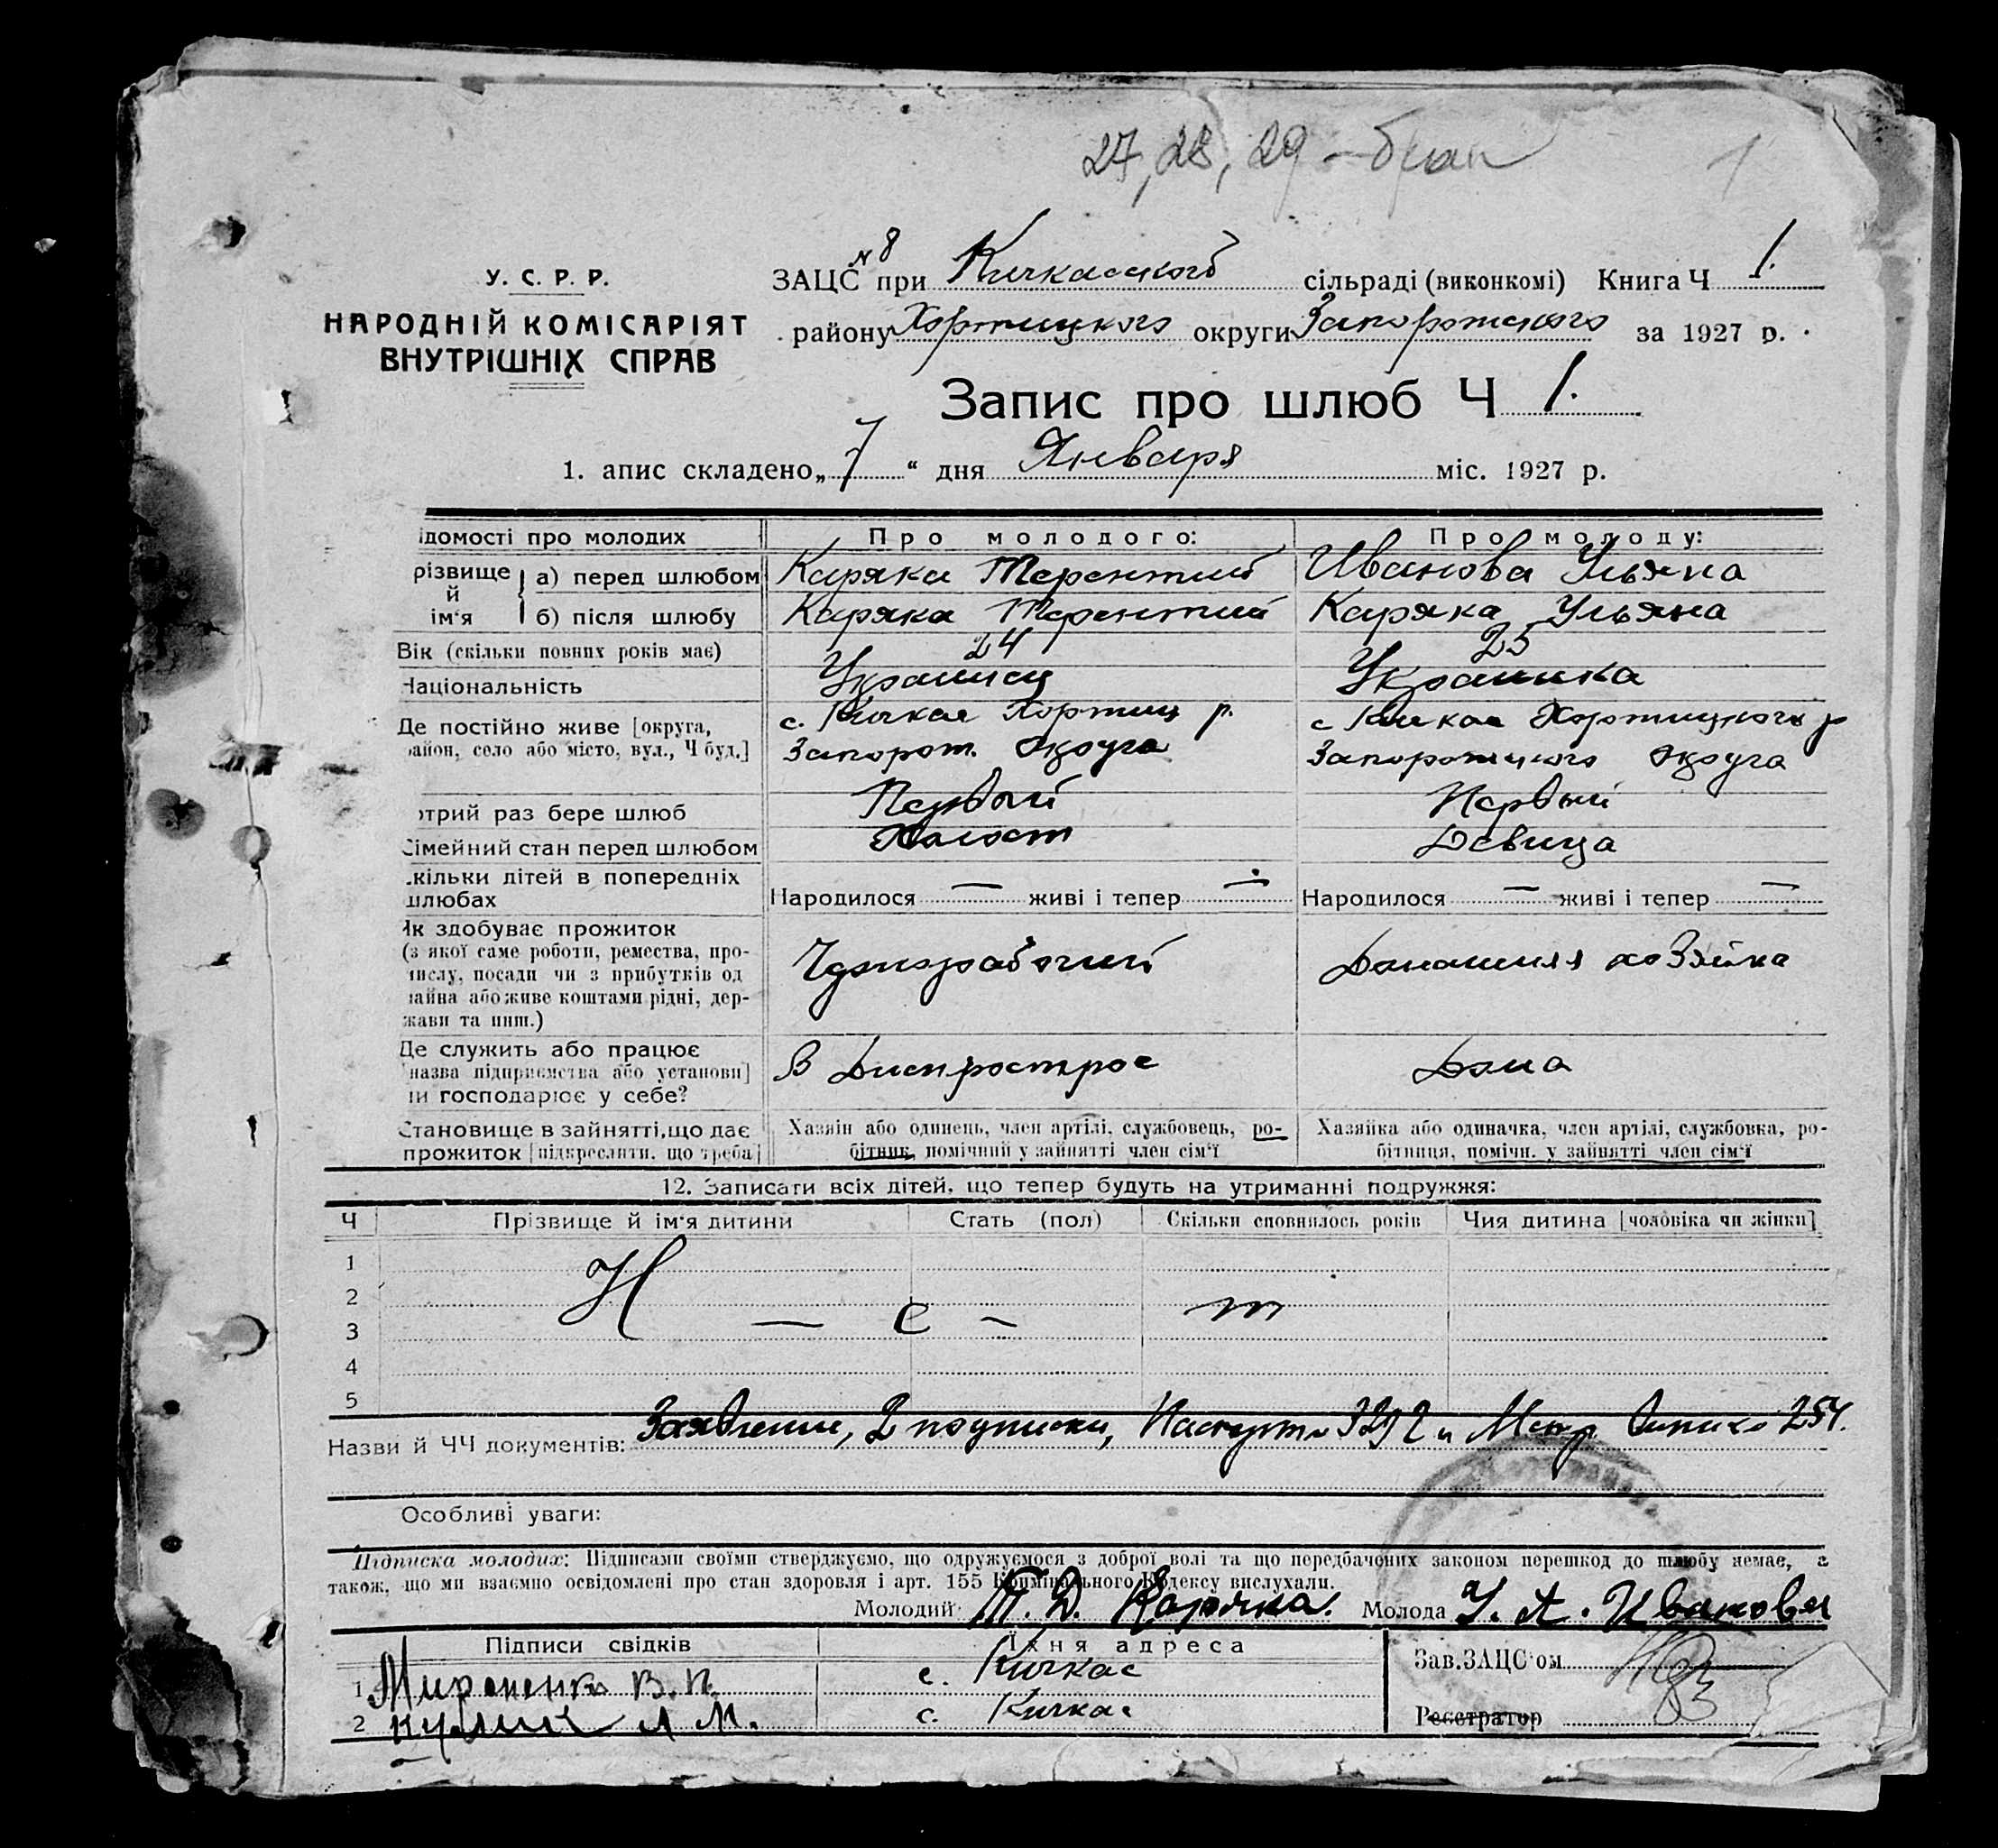 27, 28, 29 – брак 1
У. С. Р. Р.
НАРОДНІЙ КОМІСАРІЯТ
ВНУТРІШНІХ СПРАВ
ЗАЦС N 8 при Кичкасского сільраді (виконкомі) Книга Ч 1.
району Хортицкого округи Запорожского за 1927 р.
Запис про шлюб Ч 1.
1. апис складено „7“ дня Января міс. 1927 р.
ідомості про молодих Про молодого: Про молоду:
різвище й ім'я а) перед шлюбом Каряка Терентий Иванова Ульяна
б) після шлюбу Каряка Терентий Каряка Ульяна
Вік (скільки повних років має) 24 25
Національність Украинец Украинка
Де постійно живе [округа, с. Кичкас Хортиц р. с Кичкас Хортицкого р
район, село або місто, вул., Ч буд.] Запорож. Округа Запорожцкого Округа
отрий раз бере шлюб Первый Первый
Сімейний стан перед шлюбом Холост Девица
кільки дітей в попередніх
шлюбах Народилося — живі і тепер — Народилося — живі і тепер —
Як здобуває прожиток
(з якої саме роботи, ремества, про-
мислу, посади чи з прибутків од Чернорабочий Домашняя хозяйка
майна або живе коштами рідні, дер-
жави та инш.)
Де служить або працює
[назва підприємства або установи] В Днепрострое Дома
чи господарює у себе?
Становище в зайнятті, що дає Хазяїн або одинець, член артілі, службовець, ро- Хазяйка або одиначка, член артілі, службовка, ро-
прожиток [підкреслити, що треба] бітник, помічний у зайнятті член сім'ї бітниця, помічн. у зайнятті член сім'ї
12. Записати всіх дітей, що тепер будуть на утриманні подружжя:
Ч Прізвище й ім'я дитини Стать (пол) Скільки сповнилось років Чия дитина [чоловіка чи жінки]
1
2
Н — е – т
3
4
5
Назви й ЧЧ документів: Заявление, 2 подписки, 3292 и Метр. выпись 254.
Особливі уваги:
Підписка молодих: Підписами своїми стверджуємо, що одружуємося з доброї волі та що передбачених законом перешкод до шлюбу немає, а
також, що ми взаємно освідомлені про стан здоровля і арт. 155 Кримінального Кодексу вислухали.
Молодий Т. Д. Каряка. Молода У. А. Иванова
Підписи свідків Їхня адреса Зав. ЗАЦС'ом
1 Мироненко В. П. с. Кичкас
2 Кулик Л М. с. Кичкас Реєстратор